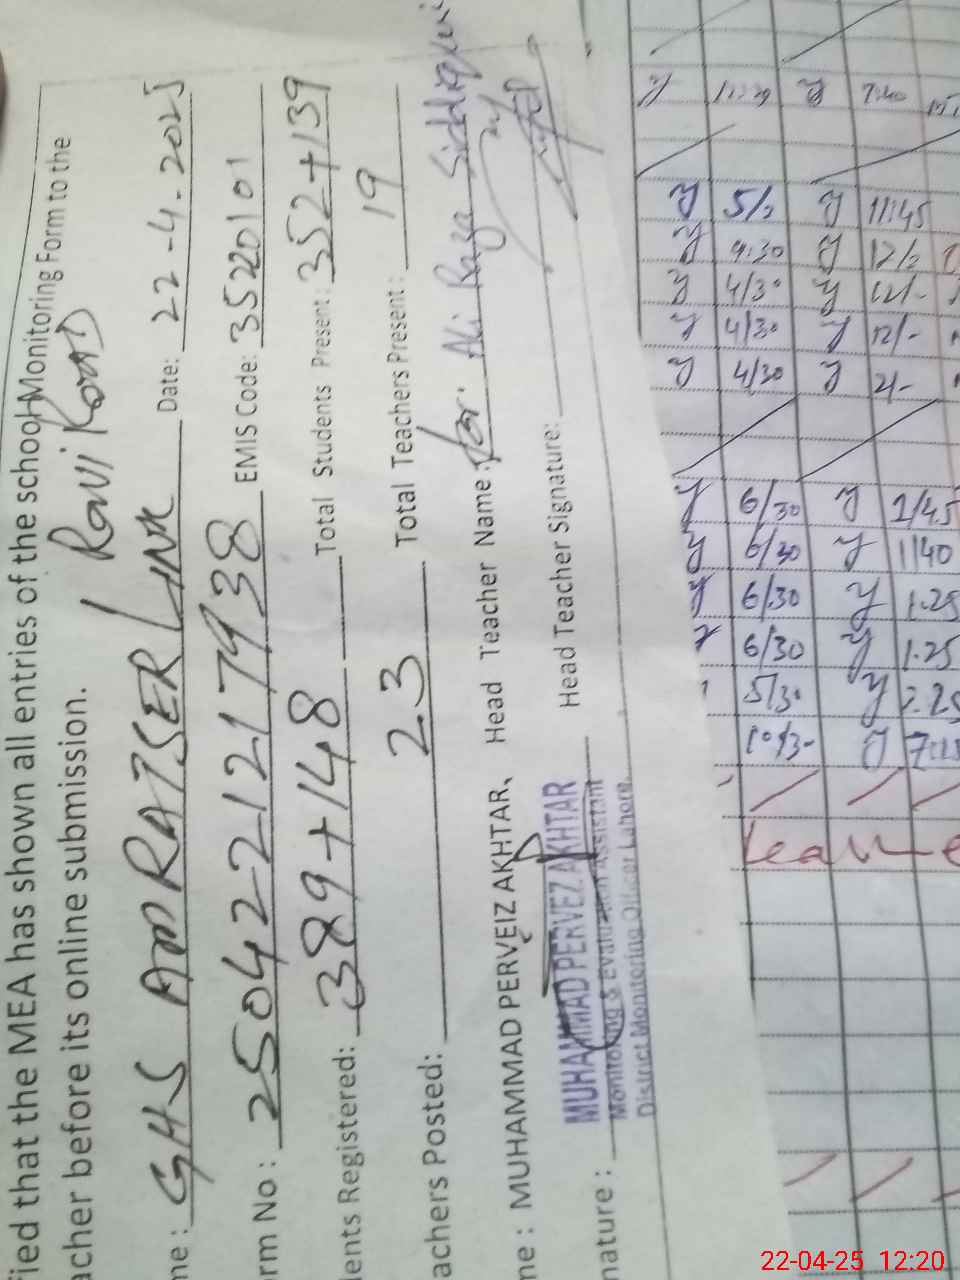 fied that the MEA has shown all entries of the school Monitoring Form to the
acher before its online submission.
Ravi Road
me : GHS AMRATSER / Date: 22-4-2025
rm No : 2504221217938 EMIS Code: 35220101
dents Registered: 389+148 Total Students Present: 352+139
achers Posted: 23 Total Teachers Present: 19
me : MUHAMMAD PERVEIZ AKHTAR, Head Teacher Name: for. Ali Raza Siddiqui
nature : Head Teacher Signature:
MUHAMMAD PERVEZ AKHTAR
Monitoring & Evaluation Assistant
District Monitoring Officer Lahore
11:29 7:40
5/2 11:45
4:30 12/2
4/30 12/-
4/30 12/-
4/30 2/-
6/30 1/45
6/30 1/40
6/30 1.25
6/30 1.25
5/30 2.25
10/30
Leave
22-04-25 12:20